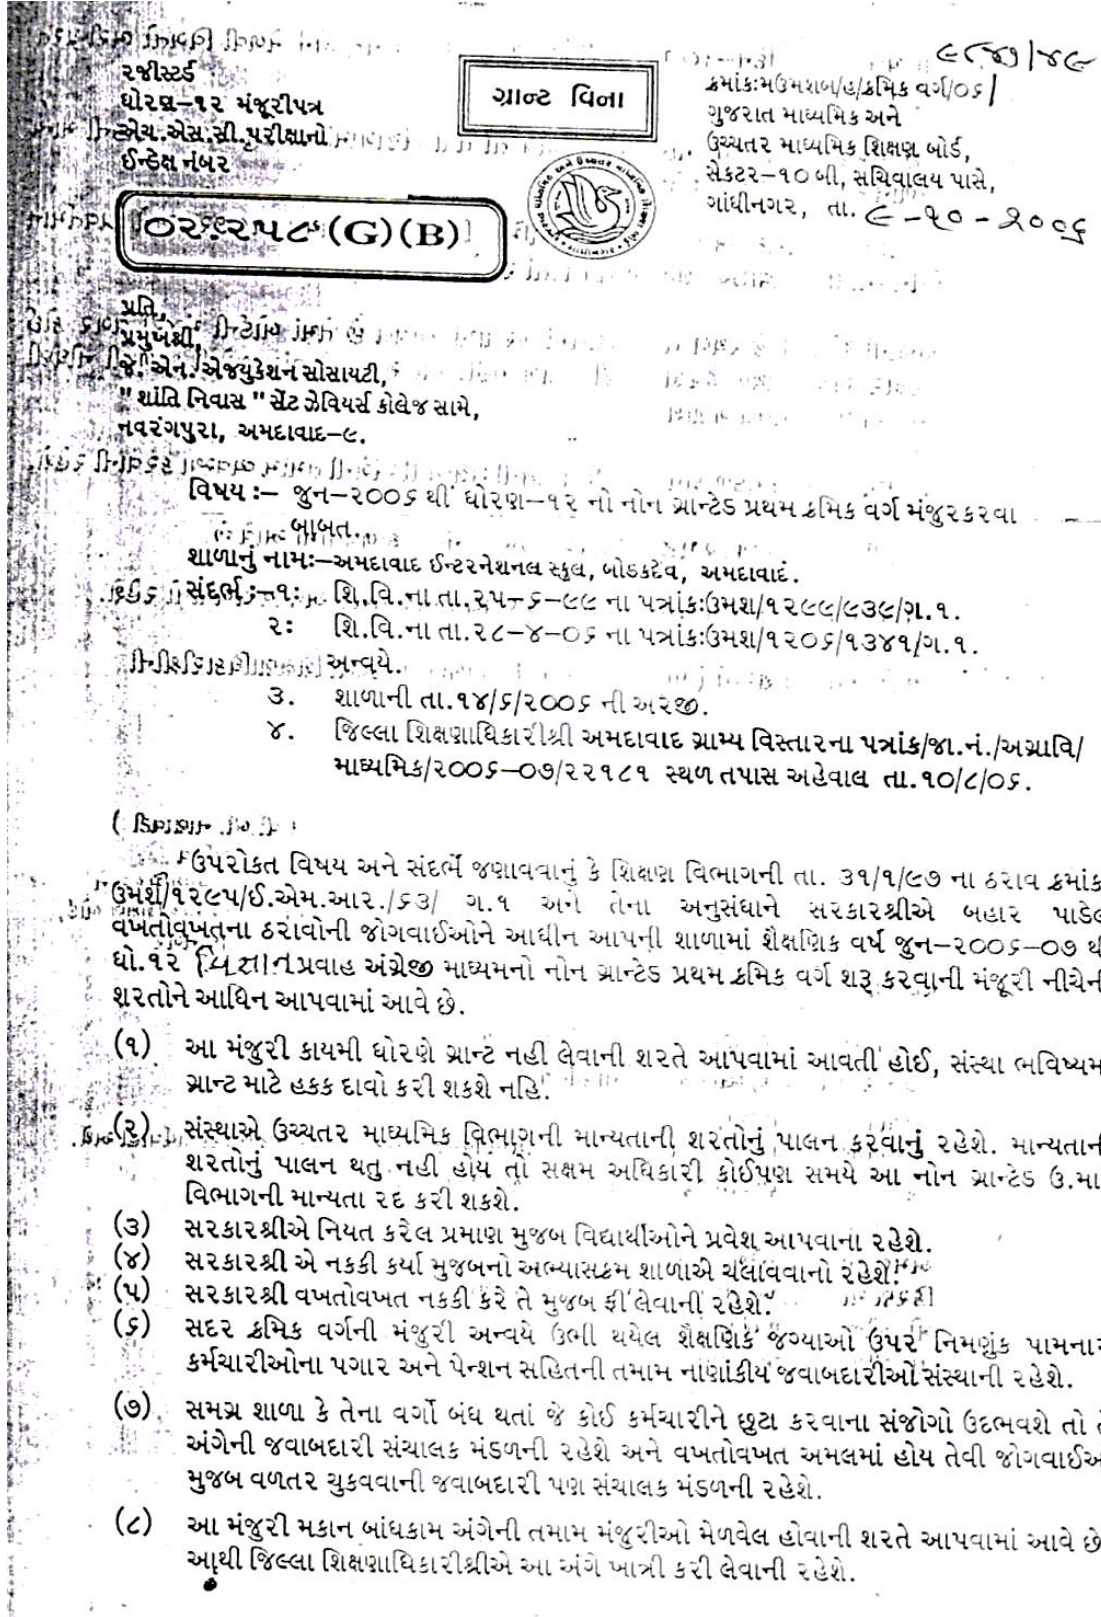 રજીસ્ટર્ડ
ધોરણ-૧૨ મંજૂરીપત્ર
એચ.એસ.સી.પરીક્ષાનો
ઈન્ડેક્ષ નંબર
(G)(B)
ગ્રાન્ટ વિના
ક્રમાંક:મઉમશબ/હ/ક્રમિક વર્ગ/૦૬/
ગુજરાત માધ્યમિક અને
ઉચ્ચતર માધ્યમિક શિક્ષણ બોર્ડ,
સેકટર-૧૦બી, સચિવાલય પાસે,
ગાંધીનગર, તા. ૯-૧૦-૨૦૦૬
પ્રતિ,
પ્રમુખશ્રી,
જે. એન. એજયુકેશન સોસાયટી,
"શાંતિ નિવાસ" સેંટ ઝેવિયર્સ કોલેજ સામે,
નવરંગપુરા, અમદાવાદ-૯.
વિષય :- જુન-૨૦૦૬ થી ધોરણ-૧૨ નો નોન ગ્રાન્ટેડ પ્રથમ ક્રમિક વર્ગ મંજુરકરવા
બાબત.
શાળાનું નામ:-અમદાવાદ ઈન્ટરનેશનલ સ્કુલ, બોડકદેવ, અમદાવાદ.
સંદર્ભ :-૧: શિ.વિ.ના તા.૨૫-૬-૯૯ ના પત્રાંક:ઉમશ/૧૨૯૯/૯૩૯/ગ.૧.
૨: શિ.વિ.ના તા.૨૮-૪-૦૬ ના પત્રાંક:ઉમશ/૧૨૦૬/૧૩૪૧/ગ.૧.
અન્વયે.
૩. શાળાની તા.૧૪/૬/૨૦૦૬ ની અરજી.
૪. જિલ્લા શિક્ષણાધિકારીશ્રી અમદાવાદ ગ્રામ્ય વિસ્તારના પત્રાંક/જા.નં./અગ્રાવિ/
માધ્યમિક/૨૦૦૬-૦૭/૨૨૧૮૧ સ્થળ તપાસ અહેવાલ તા.૧૦/૮/૦૬.
ઉપરોકત વિષય અને સંદર્ભે જણાવવાનું કે શિક્ષણ વિભાગની તા. ૩૧/૧/૯૭ ના ઠરાવ ક્રમાંક
ઉમશ/૧૨૯૫/ઈ.એમ.આર./૬૩/ ગ.૧ અને તેના અનુસંધાને સરકારશ્રીએ બહાર પાડેલ
વખતોવખતના ઠરાવોની જોગવાઈઓને આધીન આપની શાળામાં શૈક્ષણિક વર્ષ જુન-૨૦૦૬-૦૭ થી
ધો.૧૨ વિજ્ઞાન પ્રવાહ અંગ્રેજી માધ્યમનો નોન ગ્રાન્ટેડ પ્રથમ ક્રમિક વર્ગ શરૂ કરવાની મંજૂરી નીચેની
શરતોને આધિન આપવામાં આવે છે.
(૧) આ મંજુરી કાયમી ધોરણે ગ્રાન્ટ નહી લેવાની શરતે આપવામાં આવતી હોઈ, સંસ્થા ભવિષ્યમ
ગ્રાન્ટ માટે હકક દાવો કરી શકશે નહિ.
(૨) સંસ્થાએ ઉચ્ચતર માધ્યમિક વિભાગની માન્યતાની શરતોનું પાલન કરવાનું રહેશે. માન્યતાની
શરતોનું પાલન થતુ નહી હોય તો સક્ષમ અધિકારી કોઈપણ સમયે આ નોન ગ્રાન્ટેડ ઉ.મા
વિભાગની માન્યતા રદ કરી શકશે.
(૩) સરકારશ્રીએ નિયત કરેલ પ્રમાણ મુજબ વિદ્યાર્થીઓને પ્રવેશ આપવાના રહેશે.
(૪) સરકારશ્રી એ નકકી કર્યા મુજબનો અભ્યાસક્રમ શાળાએ ચલાવવાનો રહેશે.
(૫) સરકારશ્રી વખતોવખત નકકી કરે તે મુજબ ફી લેવાની રહેશે.
(૬) સદર ક્રમિક વર્ગની મંજુરી અન્વયે ઉભી થયેલ શૈક્ષણિક જગ્યાઓ ઉપર નિમણુંક પામનાર
કર્મચારીઓના પગાર અને પેન્શન સહિતની તમામ નાણાંકીય જવાબદારીઓ સંસ્થાની રહેશે.
(૭) સમગ્ર શાળા કે તેના વર્ગો બંધ થતાં જે કોઈ કર્મચારીને છુટા કરવાના સંજોગો ઉદભવશે તો તે
અંગેની જવાબદારી સંચાલક મંડળની રહેશે અને વખતોવખત અમલમાં હોય તેવી જોગવાઈઅ
મુજબ વળતર ચુકવવાની જવાબદારી પણ સંચાલક મંડળની રહેશે.
(૮) આ મંજુરી મકાન બાંધકામ અંગેની તમામ મંજુરીઓ મેળવેલ હોવાની શરતે આપવામાં આવે છે
આથી જિલ્લા શિક્ષણાધિકારીશ્રીએ આ અંગે ખાત્રી કરી લેવાની રહેશે.